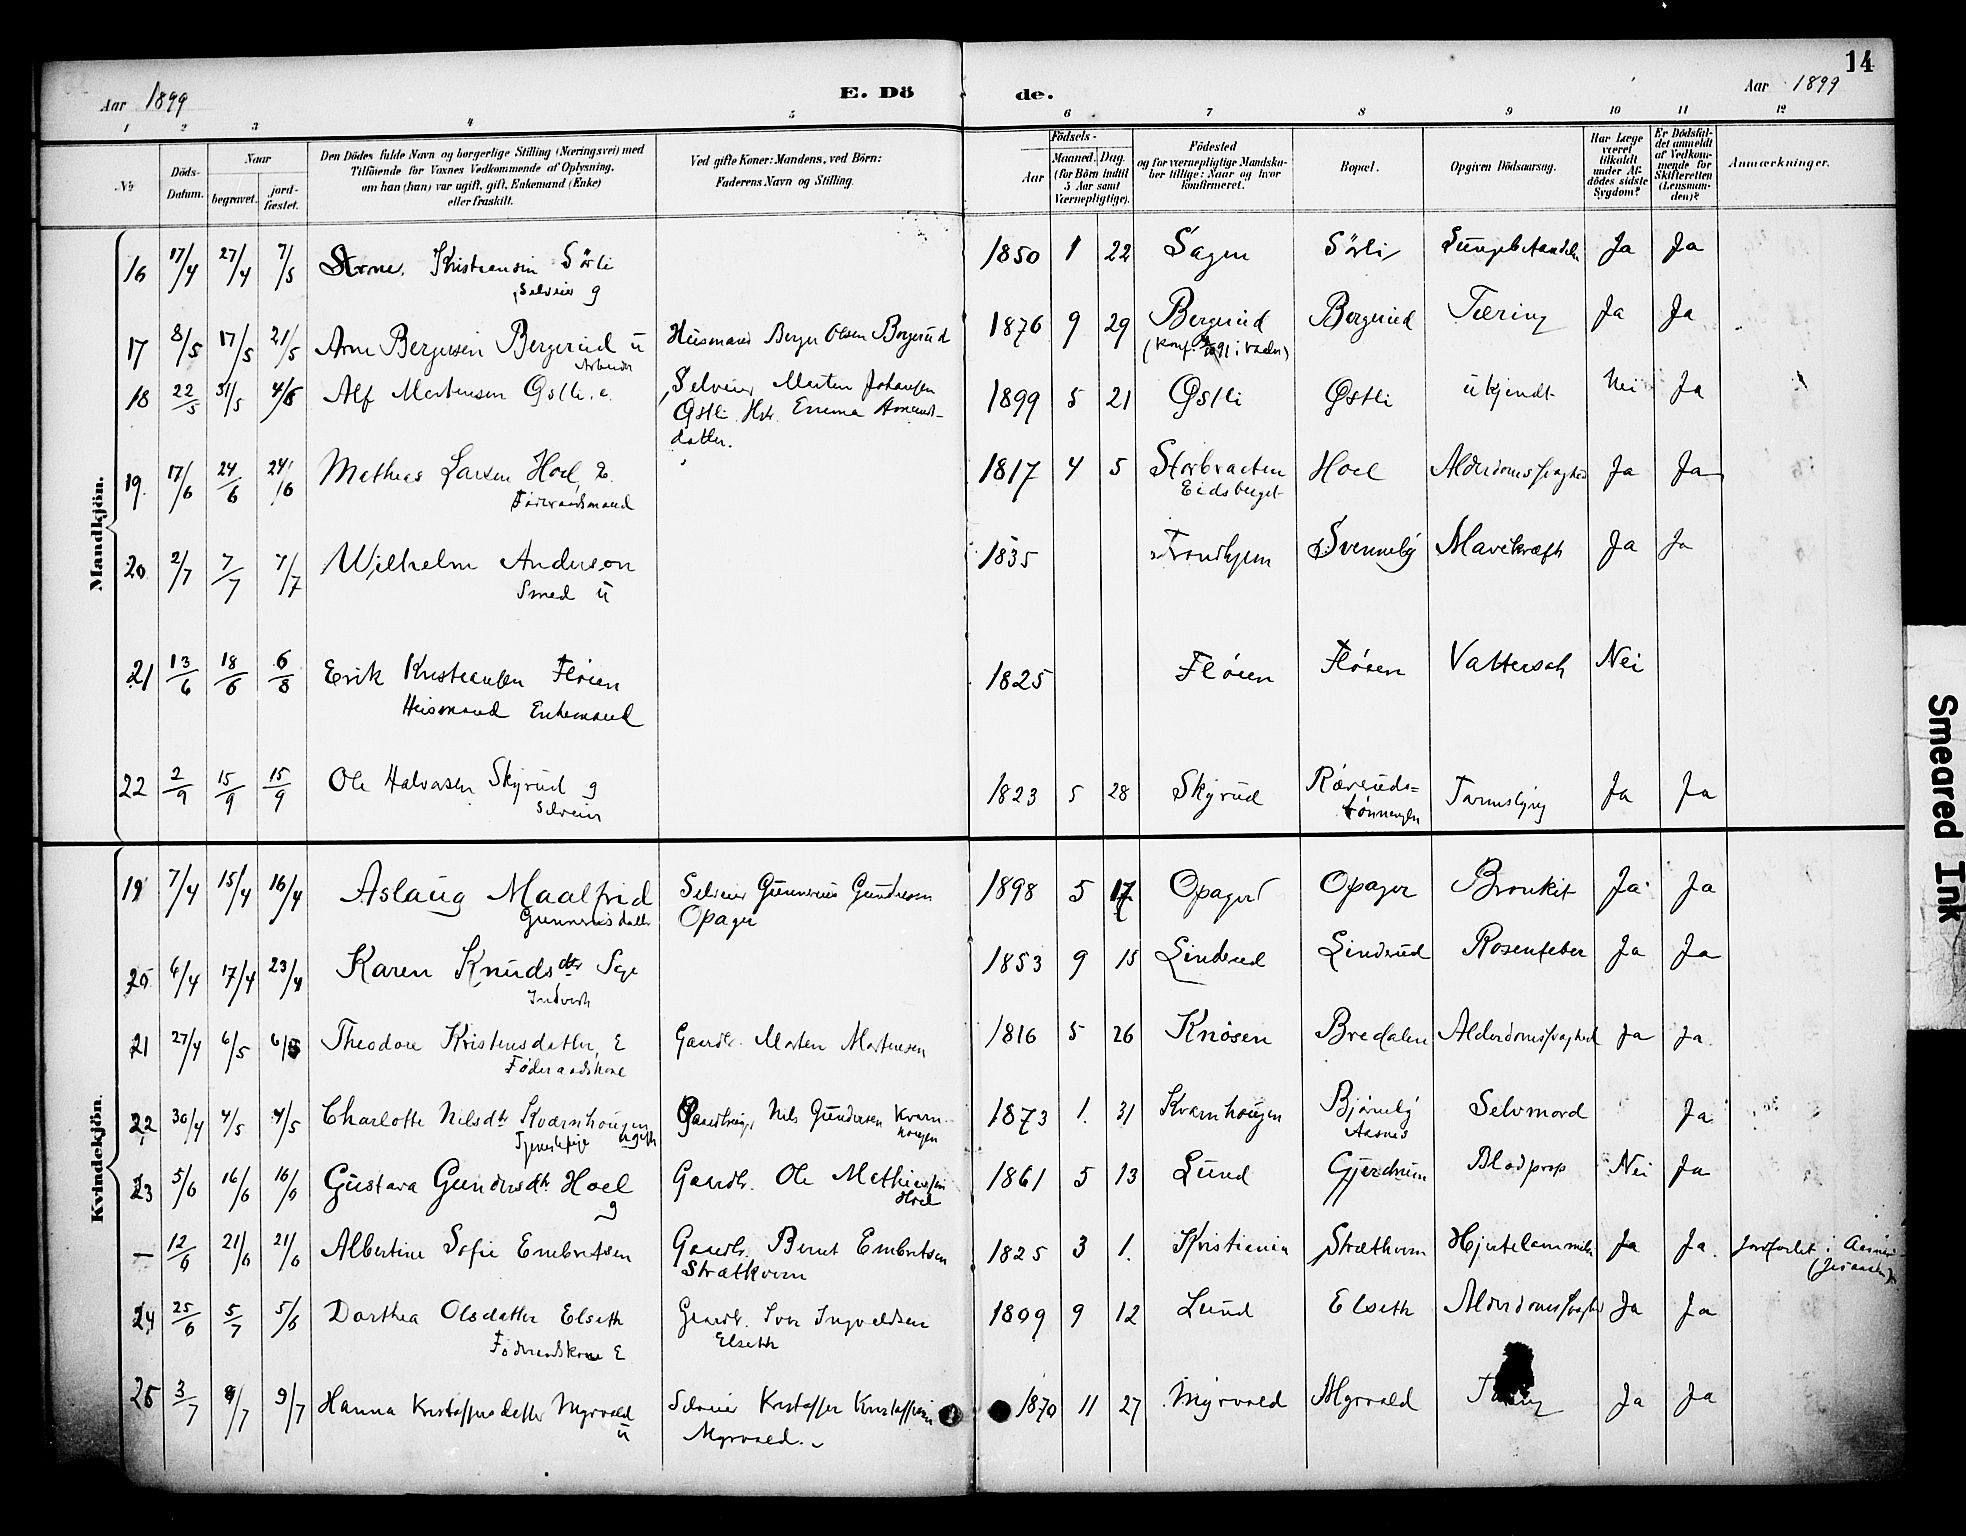 14
Aar 1899
E. Dö de.
Aar 1899
1 2 3 4 5 6 7 8 9 10 11 12
No
Döds-Datum.
Naar
begravet.
jord-fæstet.
Den Dödes fulde Navn og borgerlige Stilling (Næringsvei) med
Tilföiende for Voxnes Vedkommende af Oplysning,
om han (hun) var ugift, gift, Enkemand (Enke)
eller fraskilt.
Ved gifte Koner: Mandens, ved Börn:
Faderens Navn og Stilling.
Födsels-
Aar
Maaned. Dag.
(for Börn indtil
5 Aar samt
Værnepligtige).
Födested
og for værnepligtige Mandska-
ber tillige: Naar og hvor
konfirmeret.
Bopæl.
Opgiven Dödsaarsag.
Har Læge
været
tilkaldt
under Af-
dödes sidste
Sygdom?
Er Dödsfal-
det anmeldt
af Vedkom-
mende for
Skifteretten
(Lensman-
den)?
Anmærkninger.
Mandkjön.
16 17/4 27/4 7/5 Arne Kristiansen Sörli 1850 1 22 Sagen Sörli Lungebetændelse Ja Ja
Selveier g
17 8/5 17/5 21/5 Arne Bergersen Bergerud u Husmand Berger Olsen Bergerud 1876 9 29 Bergerud Bergerud Tæring Ja Ja
Arbeider (Konf. 1891 i Vaaler)
18 22/5 31/5 4/6 Alf Martinsen Østli Selveier Martin Johansen 1899 5 21 Østli Østli ukjendt Nei Ja
Østli Hstr. Emma
datter.
19 17/6 24/6 24/6 Mathias Larsen Hoel E. 1817 4 5 Storbraaten Hoel Alderdomssvaghed Ja Ja
Föderaadsmand Eidsberget
20 2/7 7/7 7/7 Wilhelm Anderson 1835 Trondhjem Svenneby Mavekræft Ja Ja
Smed u
21 13/6 18/6 6/8 Erik Kristiansen Flöien 1825 Flöien Flöien Vattersot Nei
Husmand Enkemand
22 2/9 15/9 15/9 Ole Halvorsen Skyrud g 1823 5 28 Skyrud Ræveruds- Tarmslyng Ja Ja
Selveier
Kvindekjön.
19 7/4 15/4 16/4 Aslaug Maalfrid Selveier Gunnerius Gundersen 1898 5 17 Opager Opager Bronkit Ja Ja
Gunneriusdatter Opager
20 6/4 17/4 23/4 Karen Knudsdtr 1853 9 15 Linderud Linderud Rosenfeber Ja Ja
21 27/4 6/5 6/5 Theodore Kristensdatter, E Gaardbr. Morten Mortensen 1816 5 26 Knösen Bredalen Alderdomssvaghed Ja Ja
Föderaadskone
22 30/4 4/5 4/5 Charlotte Nilsdtr Kværnhougen Gaardbruger Nils Gundersen Kværn- 1873 1. 31 Kværnhougen Bjørneby Selvmord Ja
Tjenestepige ugift hougen Aasnes
23 5/6 16/6 16/6 Gustava Gundersdtr Hoel Gaardbr. Ole Mathiassen 1861 5 13 Lund Gjerdrum Blodprop Nei Ja
g Hoel
— 12/6 21/6 21/6 Albertine Sofie Embretsen Gaardbr. Bernt Embretsen 1825 3 1. Kristiania Strætkvern Hjertelammelse Ja Ja. Jordfæstet i Aasnes
Strætkvern
24 25/6 5/7 5/6 Dorthea Olsdatter Elseth Gaardbr. Iver Ingvaldsen 1809 9 12 Lund Elseth Alderdomssvaghed Ja Ja
Föderaadskone E Elseth
25 3/7 9/7 9/7 Hanna Kristoffersdatter Myrvold Selveier Kristoffer Kristoffersen 1870 11 27 Myrvold Myrvold Tæring Ja Ja
u Myrvold.
Smeared Ink